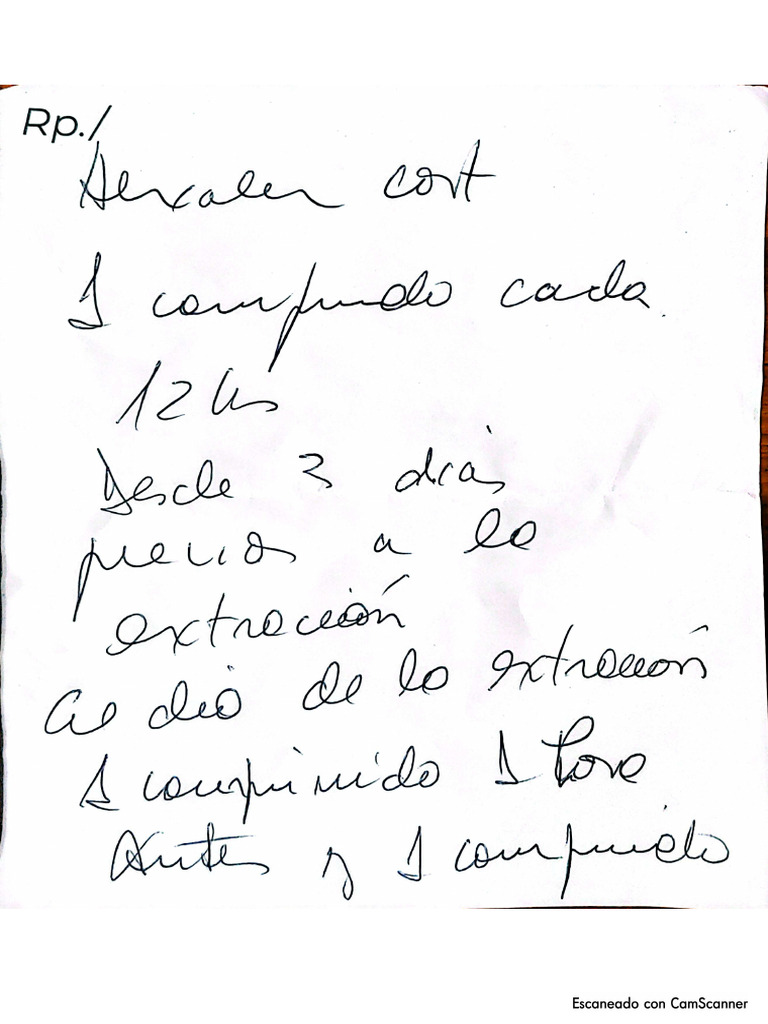 Rp./
cort
1 comprimido cada
12 hs
Desde 3 días
previos a la
extracción
el día de la extracción
1 comprimido 1 hora
Antes y 1 comprimido
Escaneado con CamScanner